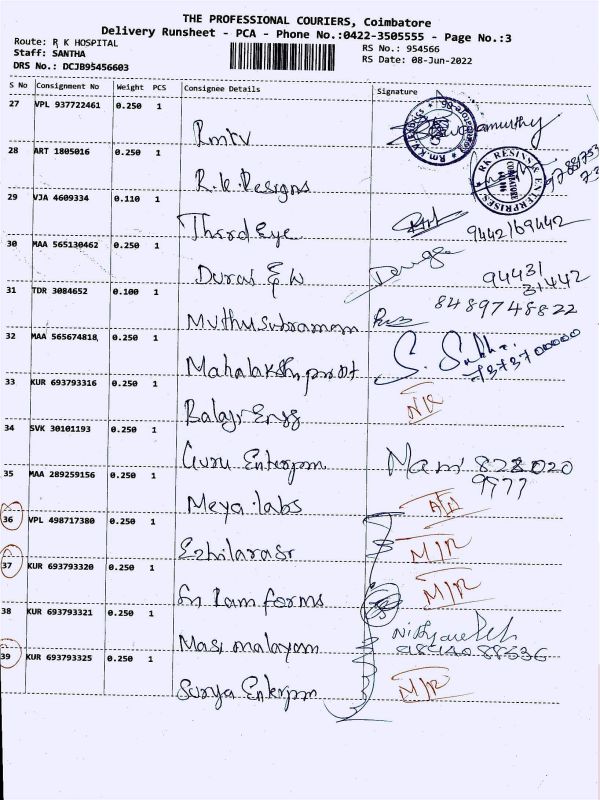 THE PROFESSIONAL COURIERS, Coimbatore
Delivery Runsheet - PCA - Phone No.:0422-3505555 - Page No.:3
Route: R K HOSPITAL
RS No.: 954566
Staff: SANTHA
RS Date: 08-Jun-2022
DRS No.: DCJB95456603
S No Consignment No Weight PCS Consignee Details Signature
27 VPL 937722461 0.250 1
Rmrv
28 ART 1805016 0.250 1
R.K.Resigns
RK RESINS & ENTERPRISES
29 VJA 4609334 0.110 1
Third Eye
9442169442
30 MAA 565130462 0.250 1
Durai E W
94431
31442
31 TDR 3084652 0.100 1
8489748822
Muthusubramam
32 MAA 565674818 0.250 1
S. Subha.
7373700000
Mahalakshmi print
33 KUR 693793316 0.250 1
N/R
Balaji Engg
34 SVK 30101193 0.250 1
Guru Enterprn
Mani 828020
9977
35 MAA 289259156 0.250 1
Meya labs
36 VPL 498717380 0.250 1
Ezhilarasi
M/R
37 KUR 693793320 0.250 1
Sri Ram forms
M/R
38 KUR 693793321 0.250 1
Masi malayam
39 KUR 693793325 0.250 1
Surya Enterprn
M/R